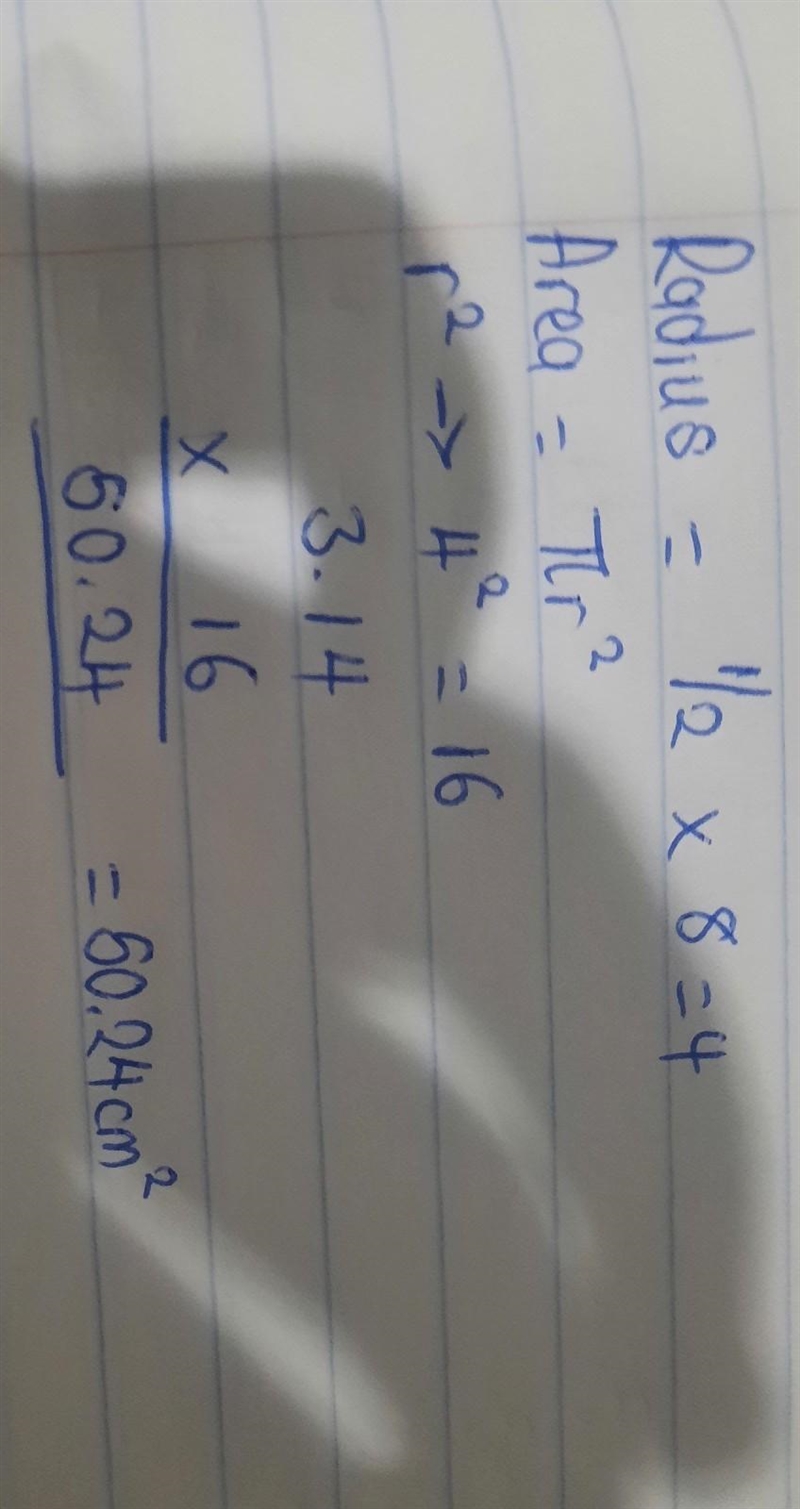 Radius = 1/2 x 8 = 4
Area = πr²
r² → 4² = 16
3.14
x 16
50.24 = 50.24cm²